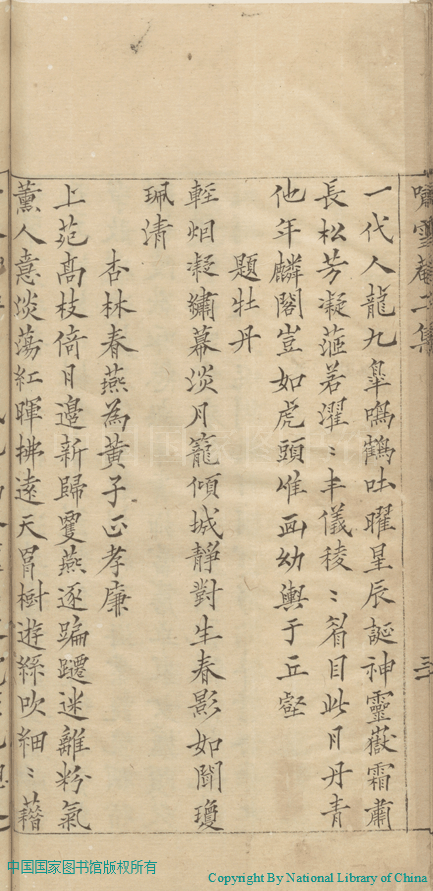 嘯雪菴二集
三
一代人龍九臯鳴鶴吐曜星辰誕神靈嶽霜肅
長松芳凝茝若濯〻丰儀稜〻眉目此日丹青
他年麟閣豈如虎頭惟画幼輿于丘壑
題牡丹
輕烟凝繡幕淡月籠傾城靜對生春影如聞瓊
珮清
杏林春燕為黃子正孝廉
上苑髙枝倚日邊新歸雙燕逐蹁躚迷離粉氣
薰人意淡蕩紅暉拂遠天罥樹遊絲吹細〻藉
中国国家图书馆版权所有
Copyright By National Library of China